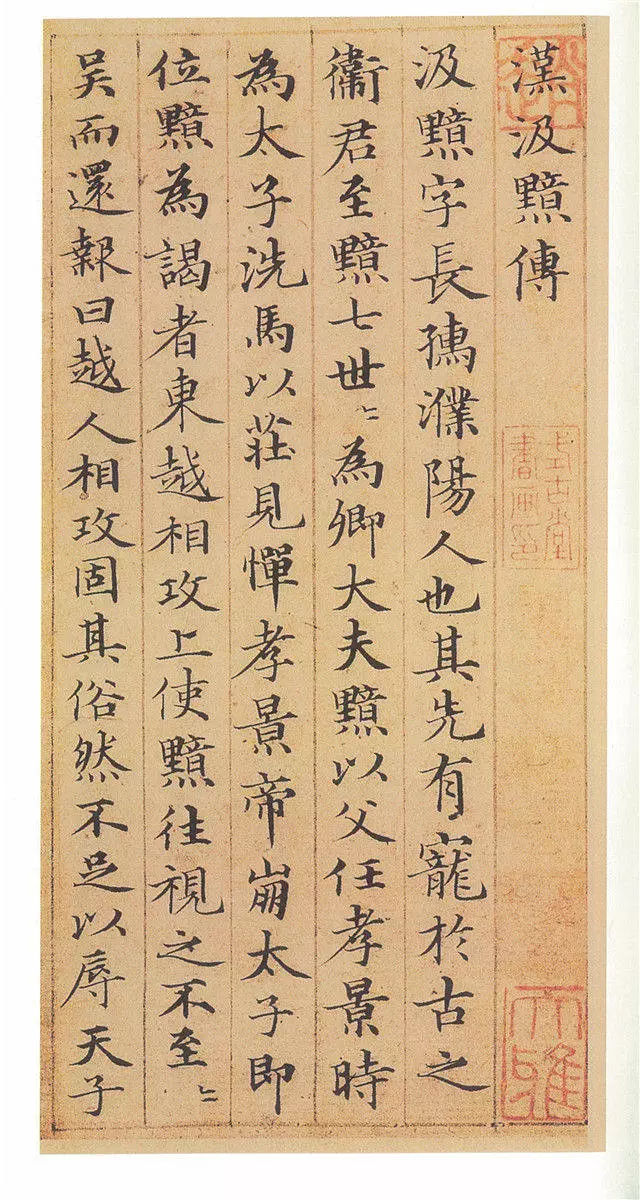 漢汲黯傳
汲黯字長孺濮陽人也其先有寵於古之
衞君至黯七世〻為卿大夫黯以父任孝景時
為太子洗馬以莊見憚孝景帝崩太子即
位黯為謁者東越相攻上使黯往視之不至〻
吳而還報曰越人相攻固其俗然不足以辱天子
式古堂書畫印
大雅